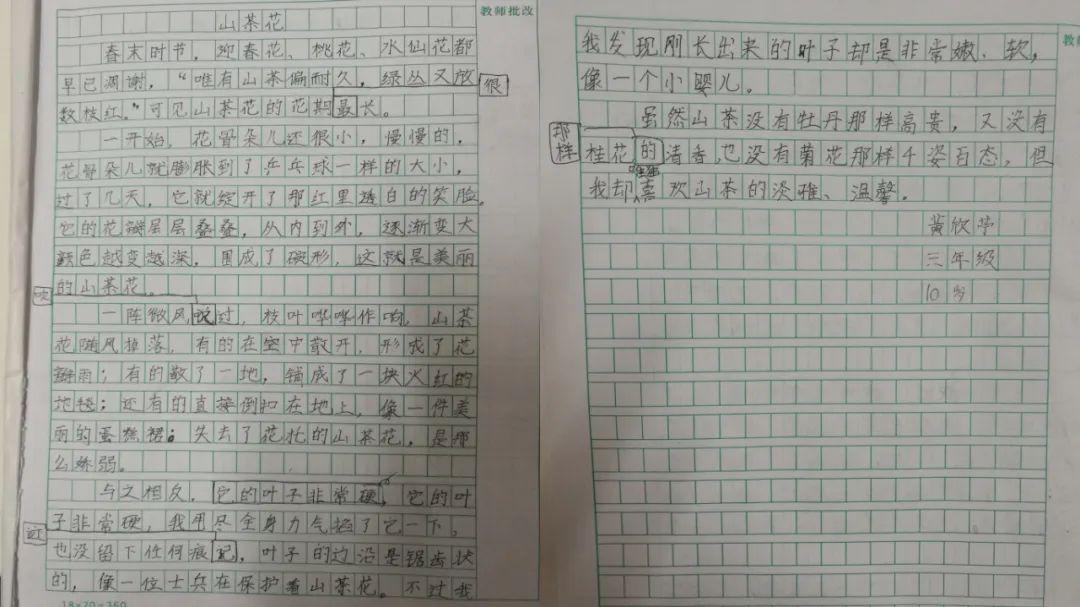 教师批改
山茶花
春末时节，迎春花、桃花、水仙花都
早已凋谢，“唯有山茶偏耐久，绿丛又放
数枝红。”可见山茶花的花期最长。
很
一开始，花骨朵儿还很小，慢慢的，
花骨朵儿就膨胀到了乒乓球一样的大小，
过了几天，它就绽开了那红里透白的笑脸。
它的花瓣层层叠叠，从内到外，逐渐变大
颜色越变越深，围成了碗形，这就是美丽
的山茶花。
吹
一阵微风吹过，枝叶哗哗作响，山茶
花随风掉落，有的在空中散开，形成了花
瓣雨；有的散了一地，铺成了一块火红的
地毯；还有的直接倒扣在地上，像一件美
丽的蛋糕裙。失去了花托的山茶花，是那
么娇弱。
与之相反，它的叶子非常硬，它的叶
子非常硬，我用尽全身力气掐了它一下。
也没留下任何痕记，叶子的边沿是锯齿状
的，像一位士兵在保护着山茶花。不过我
18×20=360
我发现刚长出来的叶子却是非常嫩、软，
像一个小婴儿。
虽然山茶没有牡丹那样高贵，又没有
那样
桂花的清香，也没有菊花那样千姿百态，但
我却喜欢山茶的淡雅、温馨。
黄欣
三年级
10岁